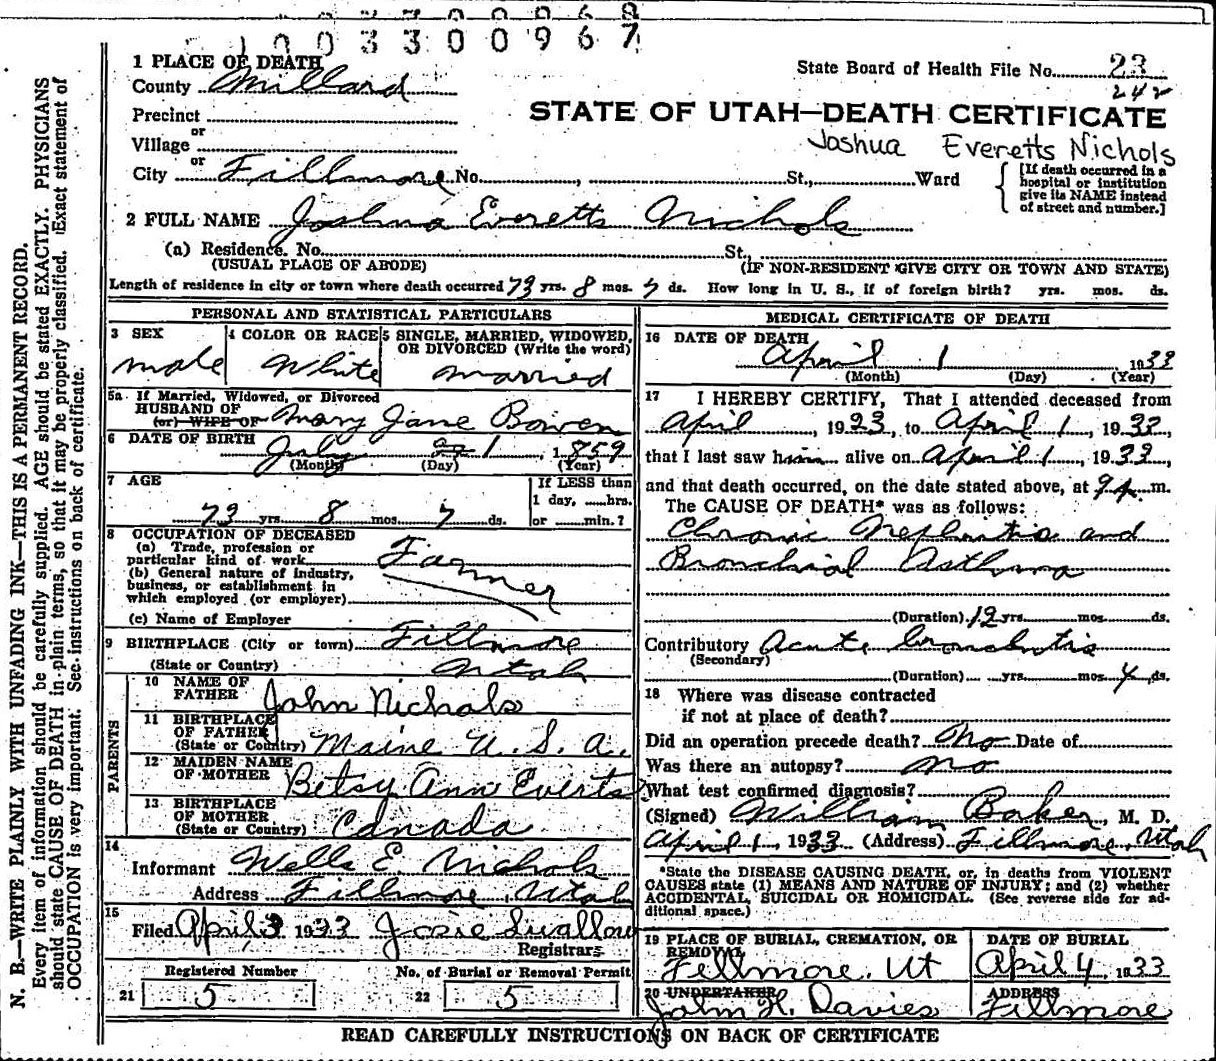 1003300967
1 PLACE OF DEATH
County Millard
State Board of Health File No. 23
242
Precinct
or
Village
or
City Fillmore No. , St., Ward
STATE OF UTAH—DEATH CERTIFICATE
Joshua Everetts Nichols
[If death occurred in a
hospital or institution
give its NAME instead
of street and number.]
2 FULL NAME Joshua Everetts Nichols
(a) Residence. No. St.,
(USUAL PLACE OF ABODE) (IF NON-RESIDENT GIVE CITY OR TOWN AND STATE)
Length of residence in city or town where death occurred 73 yrs. 8 mos. 7 ds. How long in U. S., if of foreign birth? yrs. mos. ds.
PERSONAL AND STATISTICAL PARTICULARS
3 SEX
male
4 COLOR OR RACE
White
5 SINGLE, MARRIED, WIDOWED,
OR DIVORCED (Write the word)
married
5a If Married, Widowed, or Divorced
HUSBAND OF
(or) WIFE OF Mary Jane Bowen
6 DATE OF BIRTH July 1, 1859
(Month) (Day) (Year)
7 AGE
73 yrs. 8 mos. 7 ds.
If LESS than
1 day, hrs.
or min.?
8 OCCUPATION OF DECEASED
(a) Trade, profession or
particular kind of work Farmer
(b) General nature of industry,
business, or establishment in
which employed (or employer)
(c) Name of Employer
9 BIRTHPLACE (City or town) Fillmore
(State or Country) Utah
PARENTS
10 NAME OF
FATHER John Nichols
11 BIRTHPLACE
OF FATHER
(State or Country) Maine U. S. A.
12 MAIDEN NAME
OF MOTHER Betsy Ann Everts
13 BIRTHPLACE
OF MOTHER
(State or Country) Canada
14
Informant Wells E Nichols
Address Fillmore, Utah
15
Filed April 3 1933 Josie Swallow
Registrars
Registered Number No. of Burial or Removal Permit
21 5 22 5
MEDICAL CERTIFICATE OF DEATH
16 DATE OF DEATH
April 1 1933
(Month) (Day) (Year)
17 I HEREBY CERTIFY, That I attended deceased from
April , 1923, to April 1, 1933,
that I last saw him alive on April 1, 1933,
and that death occurred, on the date stated above, at 9 m.
The CAUSE OF DEATH* was as follows:
Chronic Nephritis and
Bronchial Asthma
(Duration) 12 yrs. mos. ds.
Contributory Acute bronchitis
(Secondary)
(Duration) yrs. mos. 4 ds.
18 Where was disease contracted
if not at place of death?
Did an operation precede death? No Date of
Was there an autopsy? no
What test confirmed diagnosis?
(Signed) William Baker, M. D.
April 1, 1933 (Address) Fillmore, Utah
*State the DISEASE CAUSING DEATH, or, in deaths from VIOLENT
CAUSES state (1) MEANS AND NATURE OF INJURY; and (2) whether
ACCIDENTAL, SUICIDAL OR HOMICIDAL. (See reverse side for ad-
ditional space.)
19 PLACE OF BURIAL, CREMATION, OR
REMOVAL
Fillmore, Ut
DATE OF BURIAL
April 4, 1933
20 UNDERTAKER
John H. Davies
ADDRESS
Fillmore
READ CAREFULLY INSTRUCTIONS ON BACK OF CERTIFICATE
N. B.—WRITE PLAINLY WITH UNFADING INK—THIS IS A PERMANENT RECORD.
Every item of information should be carefully supplied. AGE should be stated EXACTLY. PHYSICIANS
should state CAUSE OF DEATH in plain terms, so that it may be properly classified. Exact statement of
OCCUPATION is very important. See instructions on back of certificate.